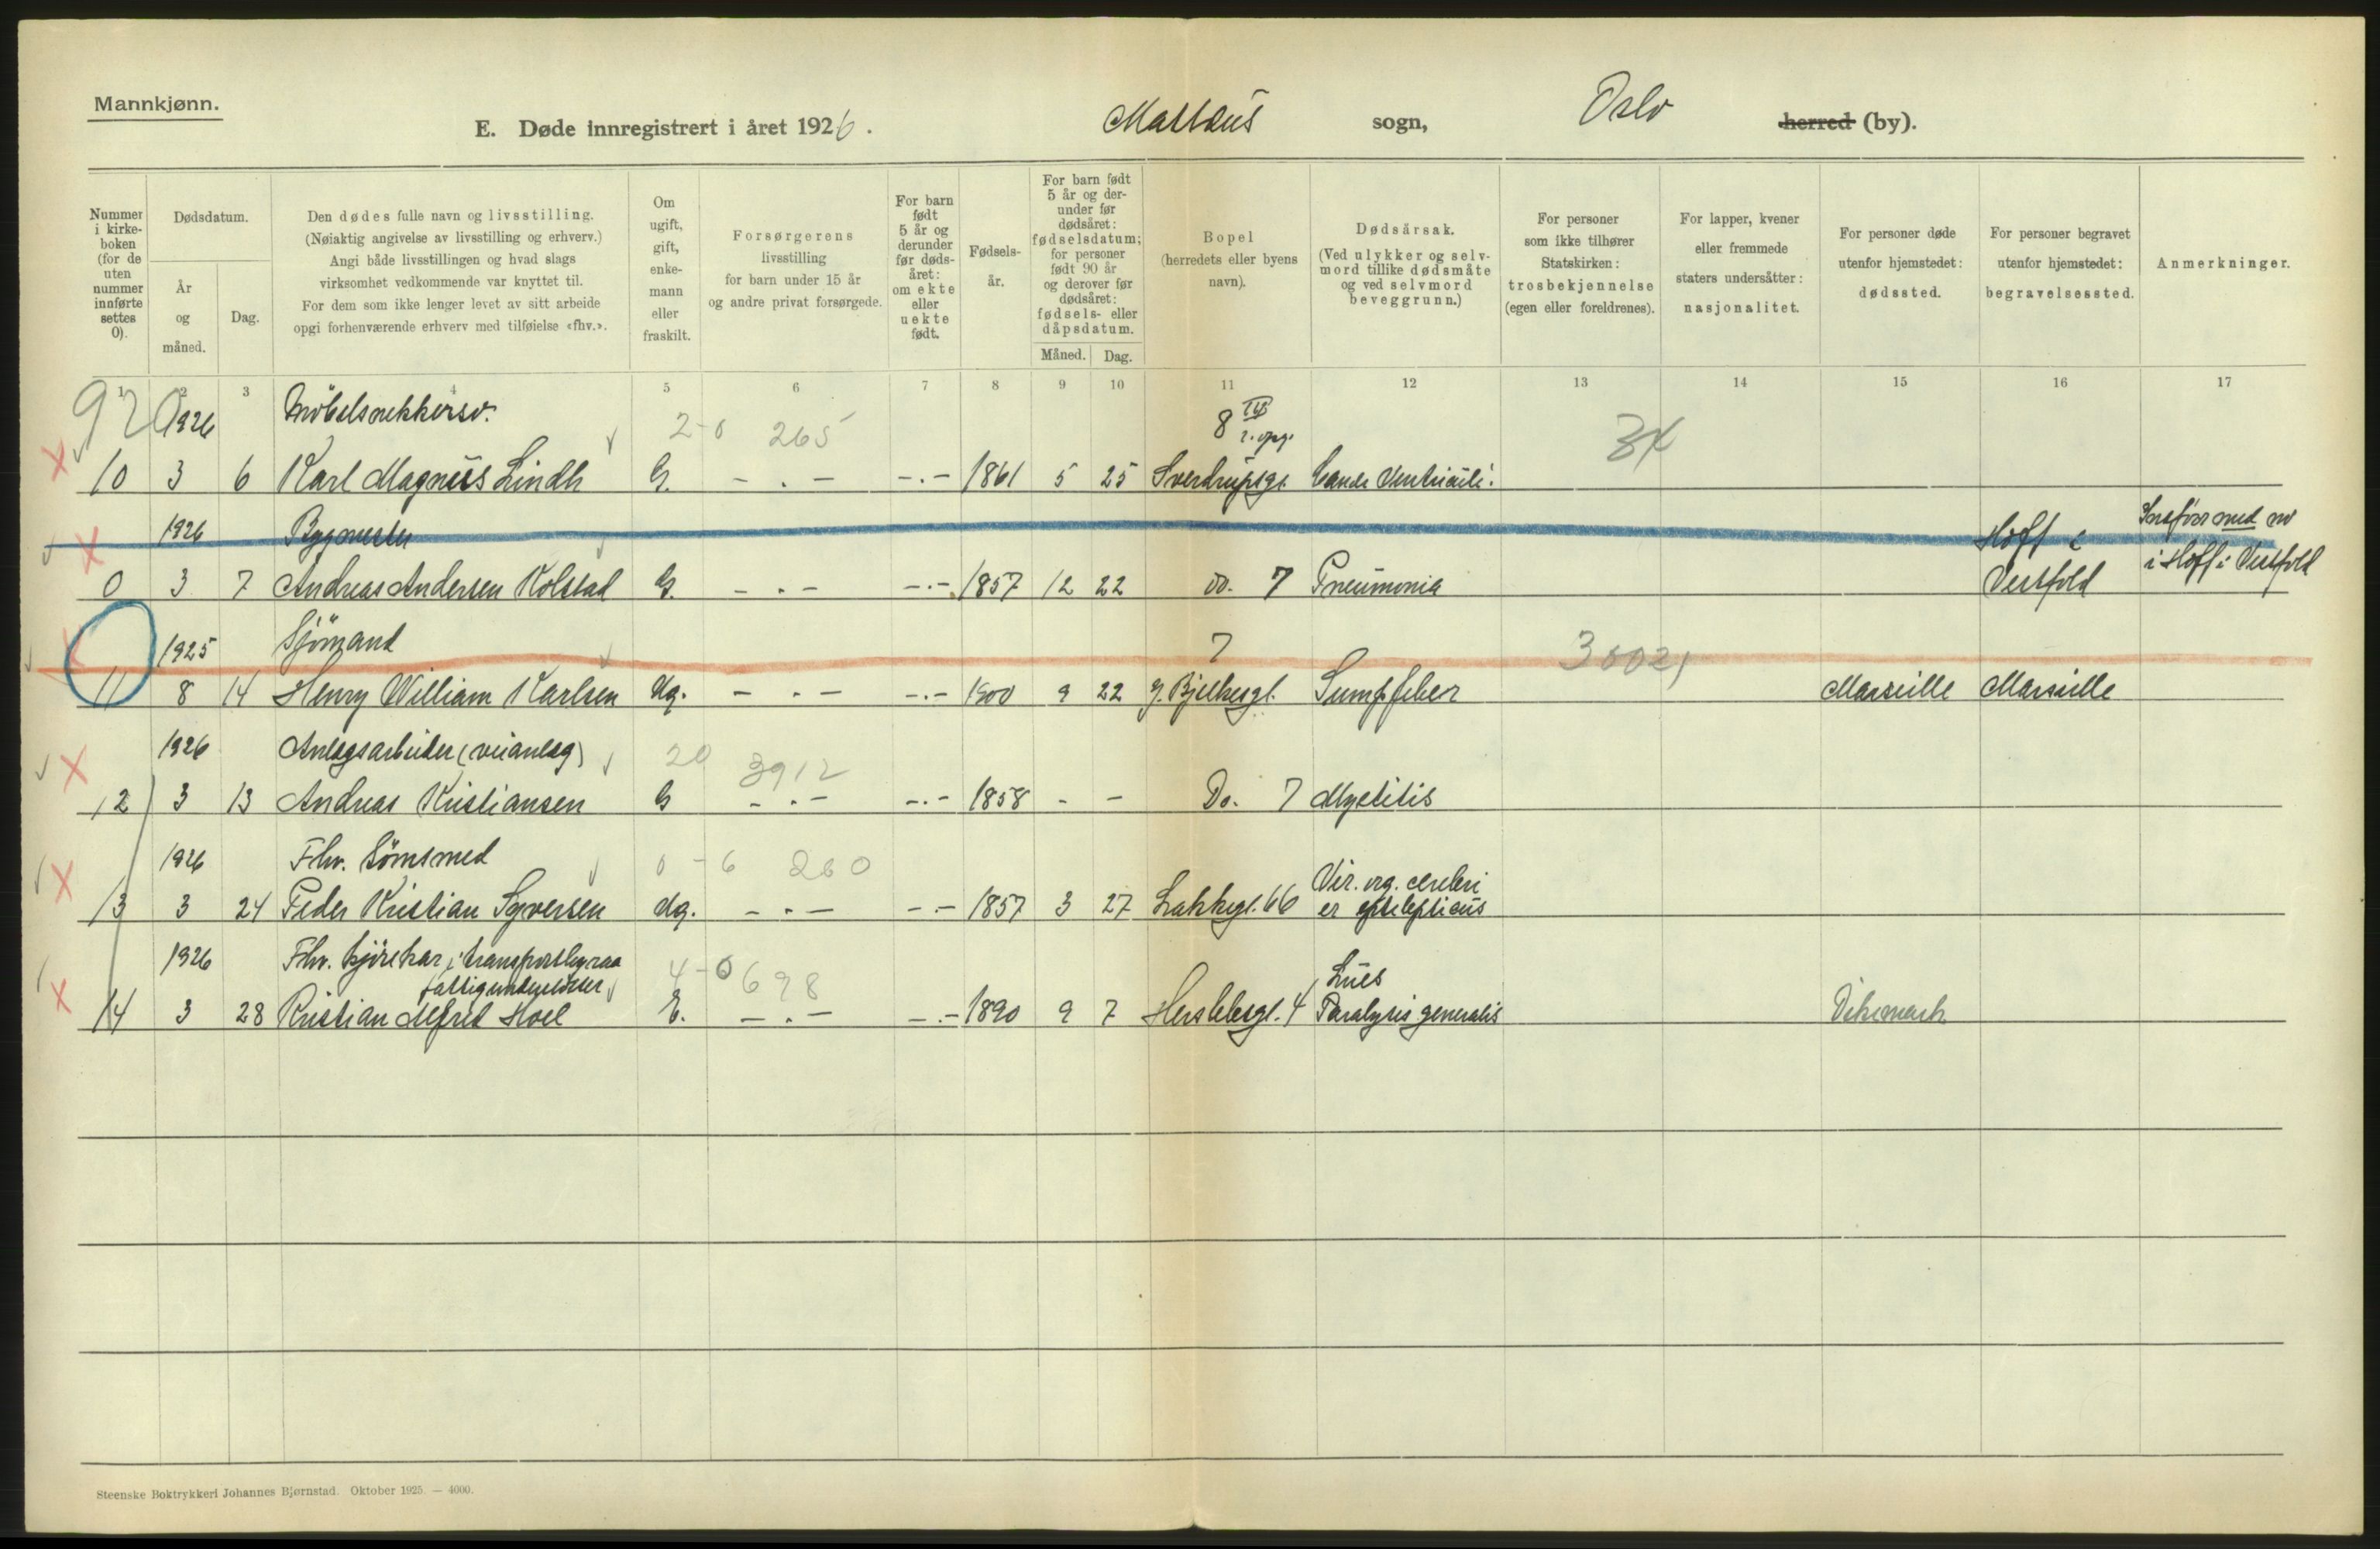 Mannkjønn.
E. Døde innregistrert i året 1926. Mattæus sogn, Oslo herred (by).
Nummer i kirke- boken (for de uten nummer innførte settes 0).
Dødsdatum.
År og måned.
Dag.
Den dødes fulle navn og livsstilling.
(Nøiaktig angivelse av livsstilling og erhverv.)
Angi både livsstillingen og hvad slags
virksomhet vedkommende var knyttet til.
For dem som ikke lenger levet av sitt arbeide
opgi forhenværende erhverv med tilføielse «fhv.».
Om ugift, gift, enke- mann eller fraskilt.
Forsørgerens
livsstilling
for barn under 15 år
og andre privat forsørgede.
For barn født 5 år og derunder før døds- året: om ekte eller uekte født.
Fødsels- år.
For barn født 5 år og der- under før dødsåret: fødselsdatum; for personer født 90 år og derover før dødsåret: fødsels- eller dåpsdatum.
Måned. Dag.
Bopel
(herredets eller byens
navn).
Dødsårsak.
(Ved ulykker og selv-
mord tillike dødsmåte
og ved selvmord
beveggrunn.)
For personer
som ikke tilhører
Statskirken:
trosbekjennelse
(egen eller foreldrenes).
For lapper, kvener
eller fremmede
staters undersåtter:
nasjonalitet.
For personer døde
utenfor hjemstedet:
dødssted.
For personer begravet
utenfor hjemstedet:
begravelsessted.
Anmerkninger.
1 2 3 4 5 6 7 8 9 10 11 12 13 14 15 16 17
920
1926 Møbelsnekkersv. 2-0 265 8 IV
2. opg.
10 3 6 Karl Magnus Lindh G. - . - - . - 1861 5 25 Sverdrupsgt. Cancer Ventriculi.
1926 Bygmester Hoff i Innført med no
0 3 7 Andreas Andersen Kolstad G. - . - - . - 1857 12 22 do. 7 Pneumonia Vestfold i Hoff i Vestfold
1925 Sjömand 7 30021
11 8 14 Henry William Karlsen Ug. - . - - . - 1900 9 22 J. Bjelkesgt. Sumpfeber Marseille Marseille
1926 Anlegsarbeider (veianleg) 20 3912
12 3 13 Andreas Kristiansen G - . - - . - 1858 - - Do. 7 Myelitis
1926 Fhv. Sömsmed 0-6 260 Vir. org. cerebri
13 3 24 Peder Kristian Syversen Ug. - . - - . - 1857 3 27 Lakkegt. 66 er epilepticus
1926 Fhv. kjörekar i transportbyraa 4-0 698
fattigunderstöttet Lues
14 3 28 Kristian Alfred Hoel E. - . - - . - 1890 9 7 Herslebsgt. 4 Paralysis generalis Dikemark
Steenske Boktrykkeri Johannes Bjørnstad. Oktober 1925. — 4000.